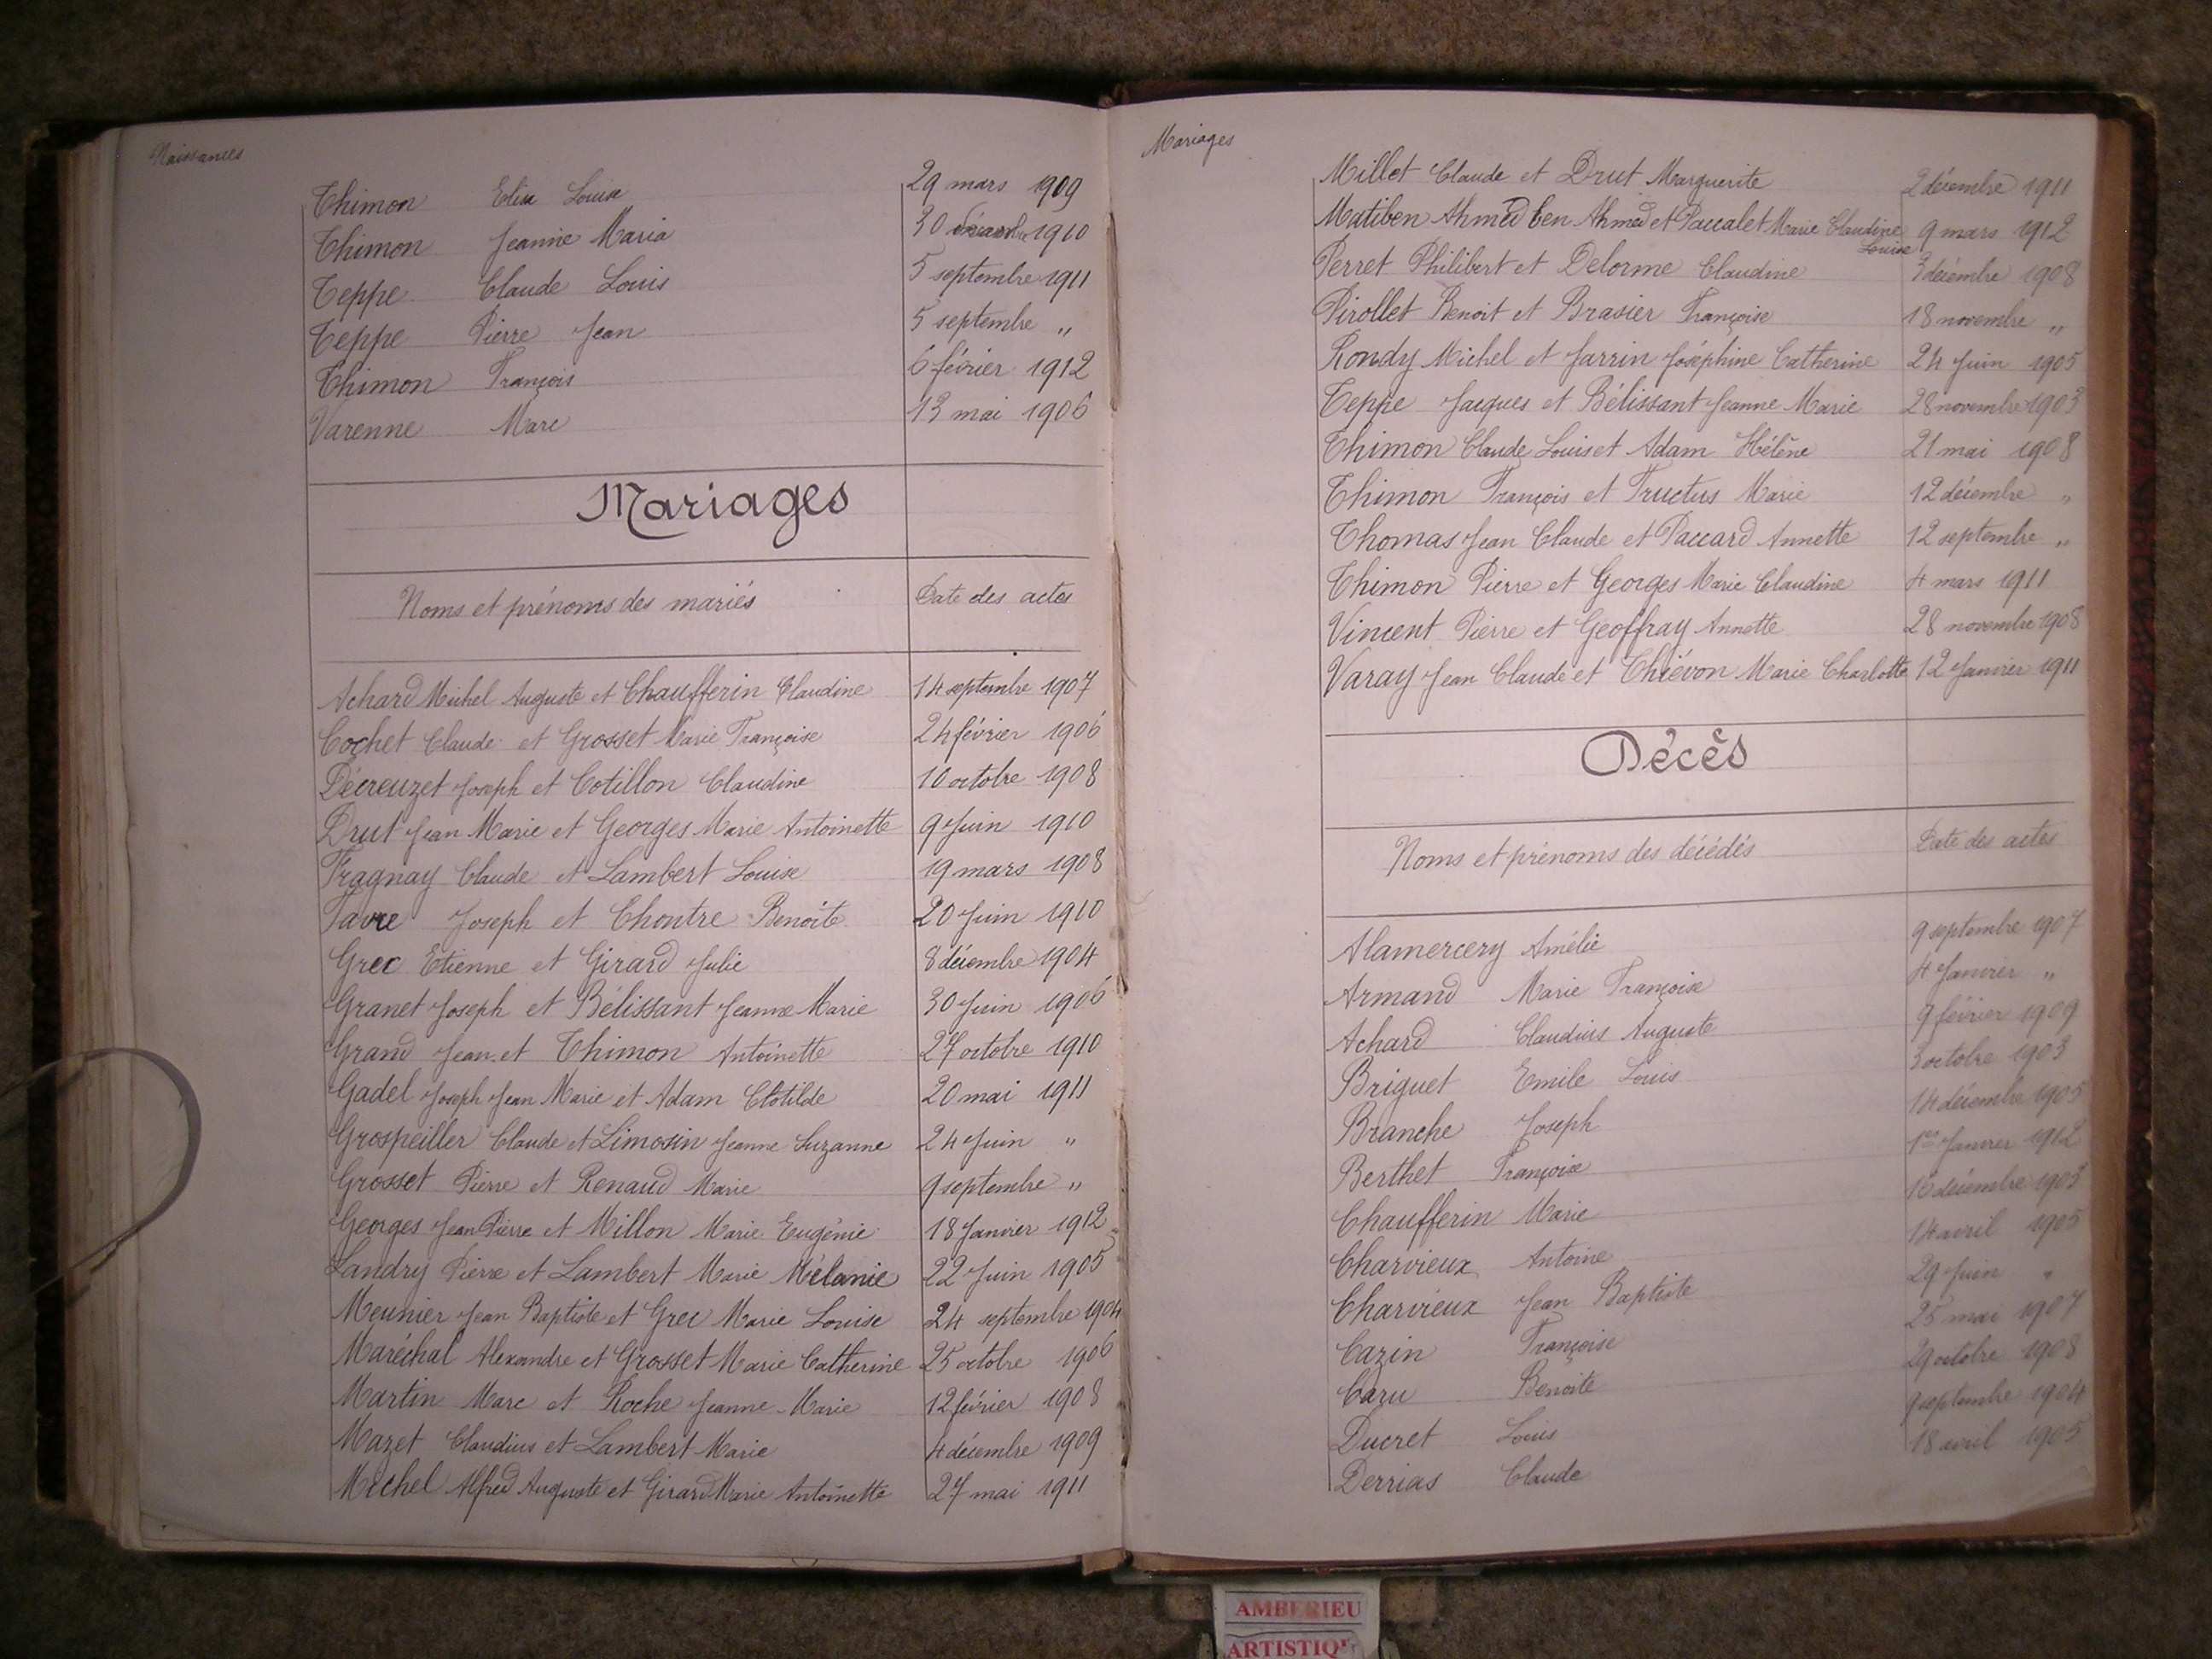 Naissances
Thimon Elise Louise 29 mars 1909
Thimon Jeanne Maria 30 1910
Teppe Claude Louis 5 septembre 1911
Teppe Pierre Jean 5 septembre "
Thimon François 6 février 1912
Varenne Marc 13 mai 1906
Mariages
Noms et prénoms des mariés Date des actes
Achard Michel Auguste et Chaufferin Claudine 14 septembre 1907
Cochet Claude et Grosset Marie Françoise 24 février 1906
Décreuzet Joseph et Cotillon Claudine 10 octobre 1908
Drut Jean Marie et Georges Marie Antoinette 9 Juin 1910
Fragnay Claude et Lambert Louise 19 mars 1908
Favre Joseph et Chontre Benoîte 20 Juin 1910
Grec Etienne et Girard Julie 8 décembre 1904
Granet Joseph et Bélissant Jeanne Marie 30 Juin 1906
Grand Jean et Thimon Antoinette 27 octobre 1910
Gadel Joseph Jean Marie et Adam Clotilde 20 mai 1911
Grospeiller Claude et Limosin Jeanne Suzanne 24 Juin "
Grosset Pierre et Renaud Marie 9 septembre "
Georges Jean Pierre et Millon Marie Eugénie 18 Janvier 1912
Landry Pierre et Lambert Marie Mélanie 22 Juin 1905
Meunier Jean Baptiste et Grec Marie Louise 24 septembre 1904
Maréchal Alexandre et Grosset Marie Catherine 25 octobre 1906
Martin Marc et Roche Jeanne-Marie 12 février 1908
Mazet Claudius et Lambert Marie 4 décembre 1909
Michel Alfred Auguste et Girard Marie Antoinette 27 mai 1911
Mariages
Millet Claude et Drut Marguerite 2 décembre 1911
Matiben Ahmed ben Ahmed et Paccalet Marie Claudine Louise 9 mars 1912
Perret Philibert et Delorme Claudine 3 décembre 1908
Pirollet Benoit et Brasier Françoise 18 novembre "
Rondy Michel et Jarrin Joséphine Catherine 24 Juin 1905
Teppe Jacques et Bélissant Jeanne Marie 28 novembre 1903
Thimon Claude Louis et Adam Hélène 21 mai 1908
Thimon François et Fructus Marie 12 décembre "
Thomas Jean Claude et Paccard Annette 12 septembre "
Thimon Pierre et Georges Marie Claudine 4 mars 1911
Vincent Pierre et Geoffray Annette 28 novembre 1908
Varay Jean Claude et Thiévon Marie Charlotte 12 Janvier 1911
Décès
Noms et prénoms des décédés Date des actes
Alamercery Amélie 9 septembre 1907
Armand Marie Françoise 4 Janvier "
Achard Claudius Auguste 9 février 1909
Briguet Emile Louis 3 octobre 1903
Branche Joseph 14 décembre 1905
Berthet Françoise 1er Janvier 1912
Chaufferin Marie 16 décembre 1903
Charvieux Antoine 14 avril 1905
Charvieux Jean Baptiste 29 Juin "
Cazin Françoise 25 mai 1907
Caru Benoite 29 octobre 1908
Ducret Louis 9 septembre 1904
Derrias Claude 18 avril 1905
AMBERIEU
ARTISTIQU